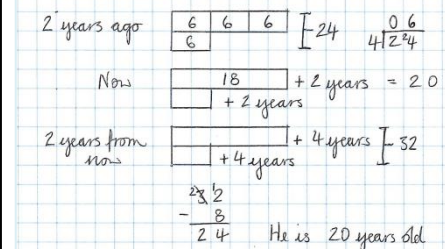 2 years ago 6 6 6 24 0 6
6 4 2 ²4
Now 18 + 2 years = 20
+ 2 years
2 years from now + 4 years 32
+ 4 years
²3 ¹2
- 8
2 4 He is 20 years old